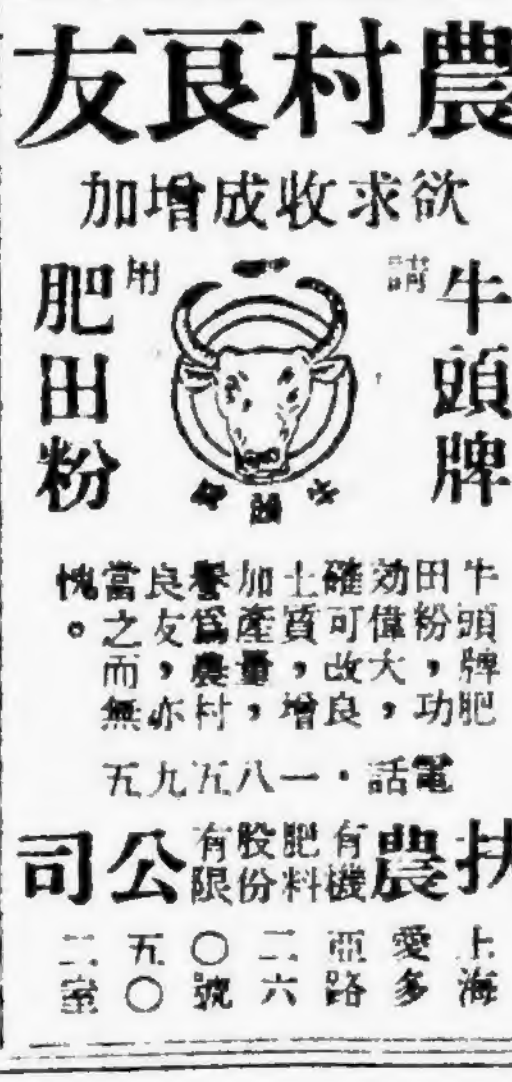 農村良友
欲求收成增加
請
牛頭牌
用
肥田粉
牛頭牌
牛頭牌肥
田粉，功
効偉大，
確可改良
土質，增
加產量，
譽爲農村
良友，亦
當之而無
愧。
電話・一八五九五
扶農有機肥料股份有限公司
上海愛多亞路二六〇號五〇二室